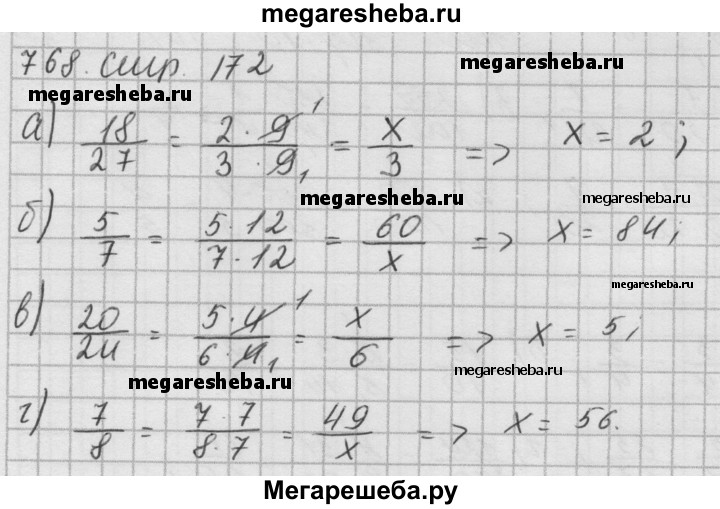 megaresheba.ru
768. стр. 172
megaresheba.ru
megaresheba.ru
а) 18/27 = 2·9/3·9 1 1 = x/3 => x = 2;
megaresheba.ru
megaresheba.ru
б) 5/7 = 5·12/7·12 = 60/x => x = 84;
megaresheba.ru
в) 20/24 = 5·4/6·4 1 1 = x/6 => x = 5;
megaresheba.ru
megaresheba.ru
г) 7/8 = 7·7/8·7 = 49/x => x = 56.
Мегарешеба.ру